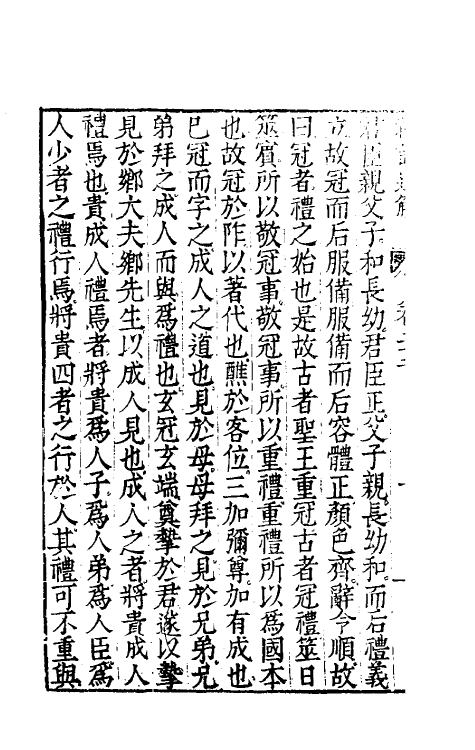 君臣親父子和長幼君臣正父子親長幼和而后禮義
立故冠而后服備服備而后容體正顏色齊辭令順故
曰冠者禮之始也是故古者聖王重冠古者冠禮筮日
筮賓所以敬冠事敬冠事所以重禮重禮所以為國本
也故冠於阼以著代也醮於客位三加彌尊加有成也
已冠而字之成人之道也見於母母拜之見於兄弟兄
弟拜之成人而與為禮也玄冠玄端奠摯於君遂以摯
見於鄉大夫鄉先生以成人見也成人之者將貴成人
禮焉也貴成人禮焉者將貴為人子為人弟為人臣為
人少者之禮行焉將貴四者之行於人其禮可不重與